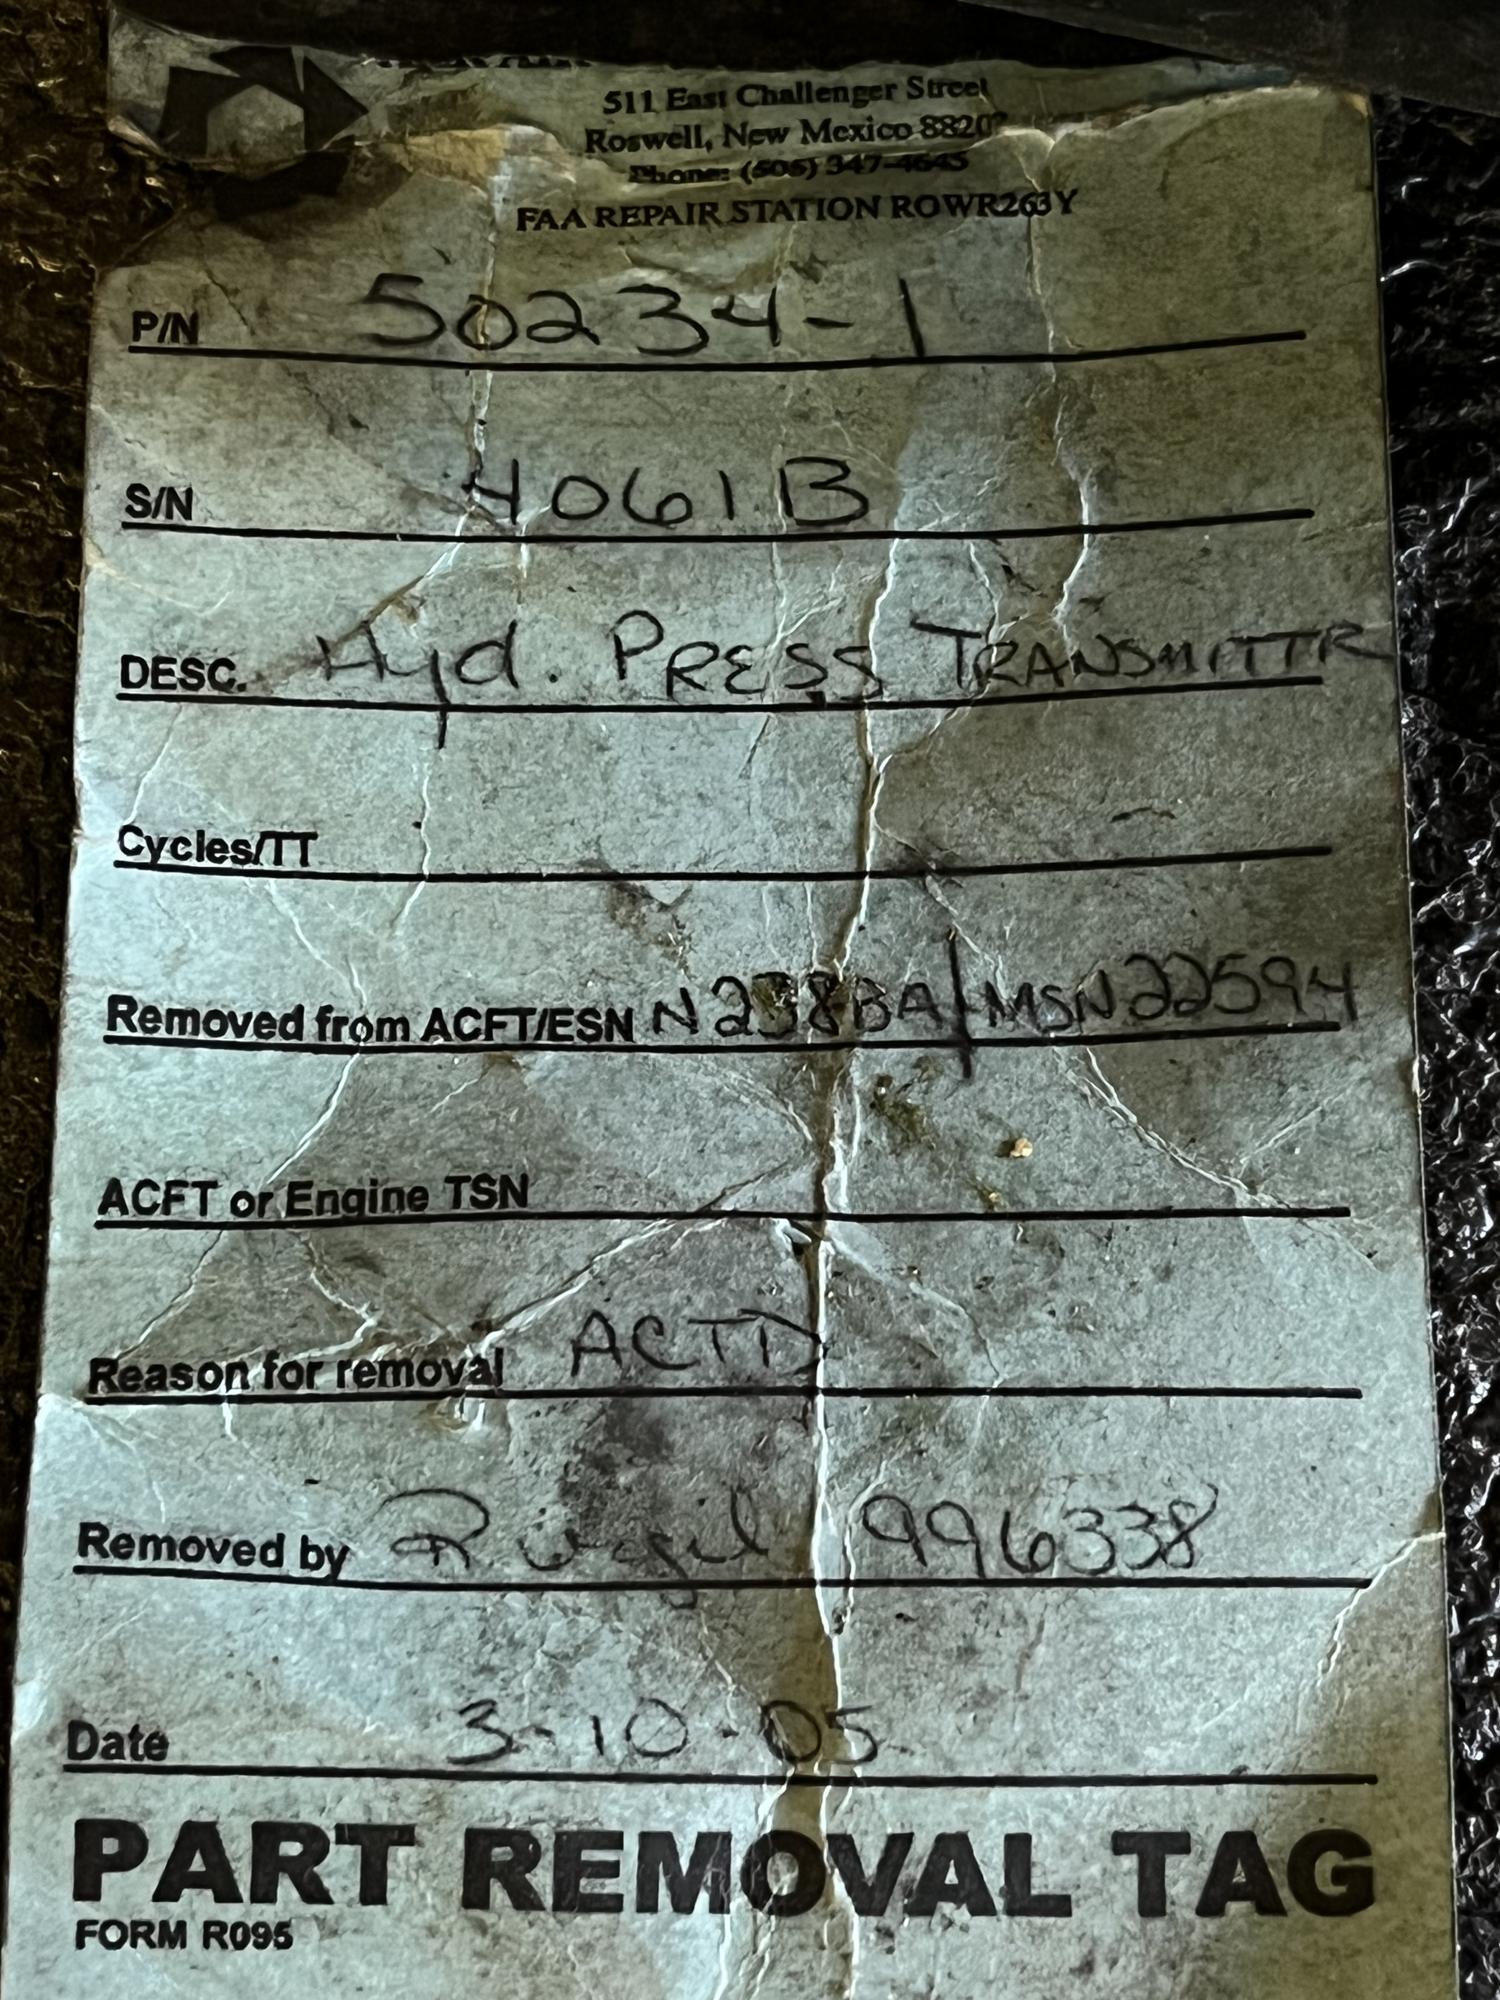 511 East Challenger Street
Roswell, New Mexico 88207
Phone: (505) 347-4645
FAA REPAIR STATION ROWR263Y
P/N 50234-1
S/N 4061B
DESC. Hyd. PRESS TRANSMITTR
Cycles/TT
Removed from ACFT/ESN N238BA/MSN22594
ACFT or Engine TSN
Reason for removal ACTD
Removed by R. 996338
Date 3-10-05
PART REMOVAL TAG
FORM R095